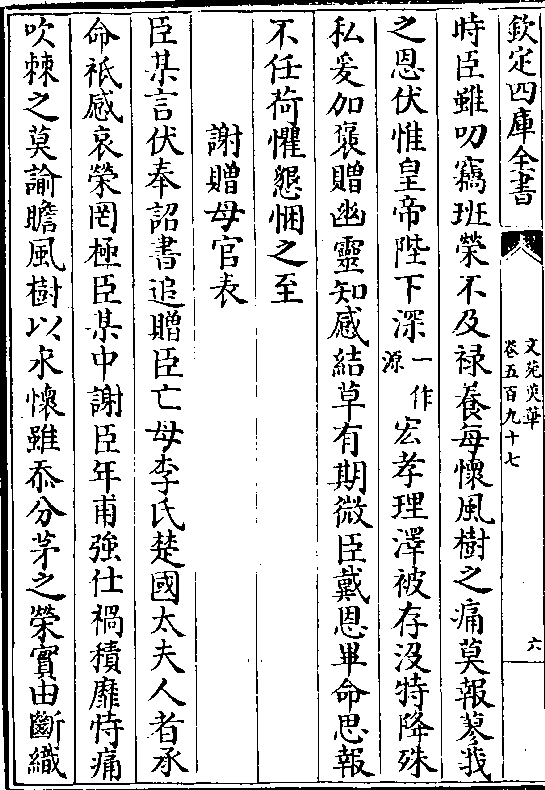 欽定四庫全書
文苑英華
卷五百九十七
六
時臣雖叨竊班榮不及禄養每懷風樹之痛莫報蓼莪
之恩伏惟皇帝陛下深一作源宏孝理澤被存沒特降殊
私爰加褒贈幽靈知感結草有期微臣戴恩畢命思報
不任荷懼懇悃之至
謝贈母官表
臣某言伏奉詔書追贈臣亡母李氏楚國太夫人者承
命祗感哀榮罔極臣某中謝臣年甫強仕禍積靡恃痛
吹棘之莫諭瞻風樹以永懷雖忝分茅之榮實由斷織